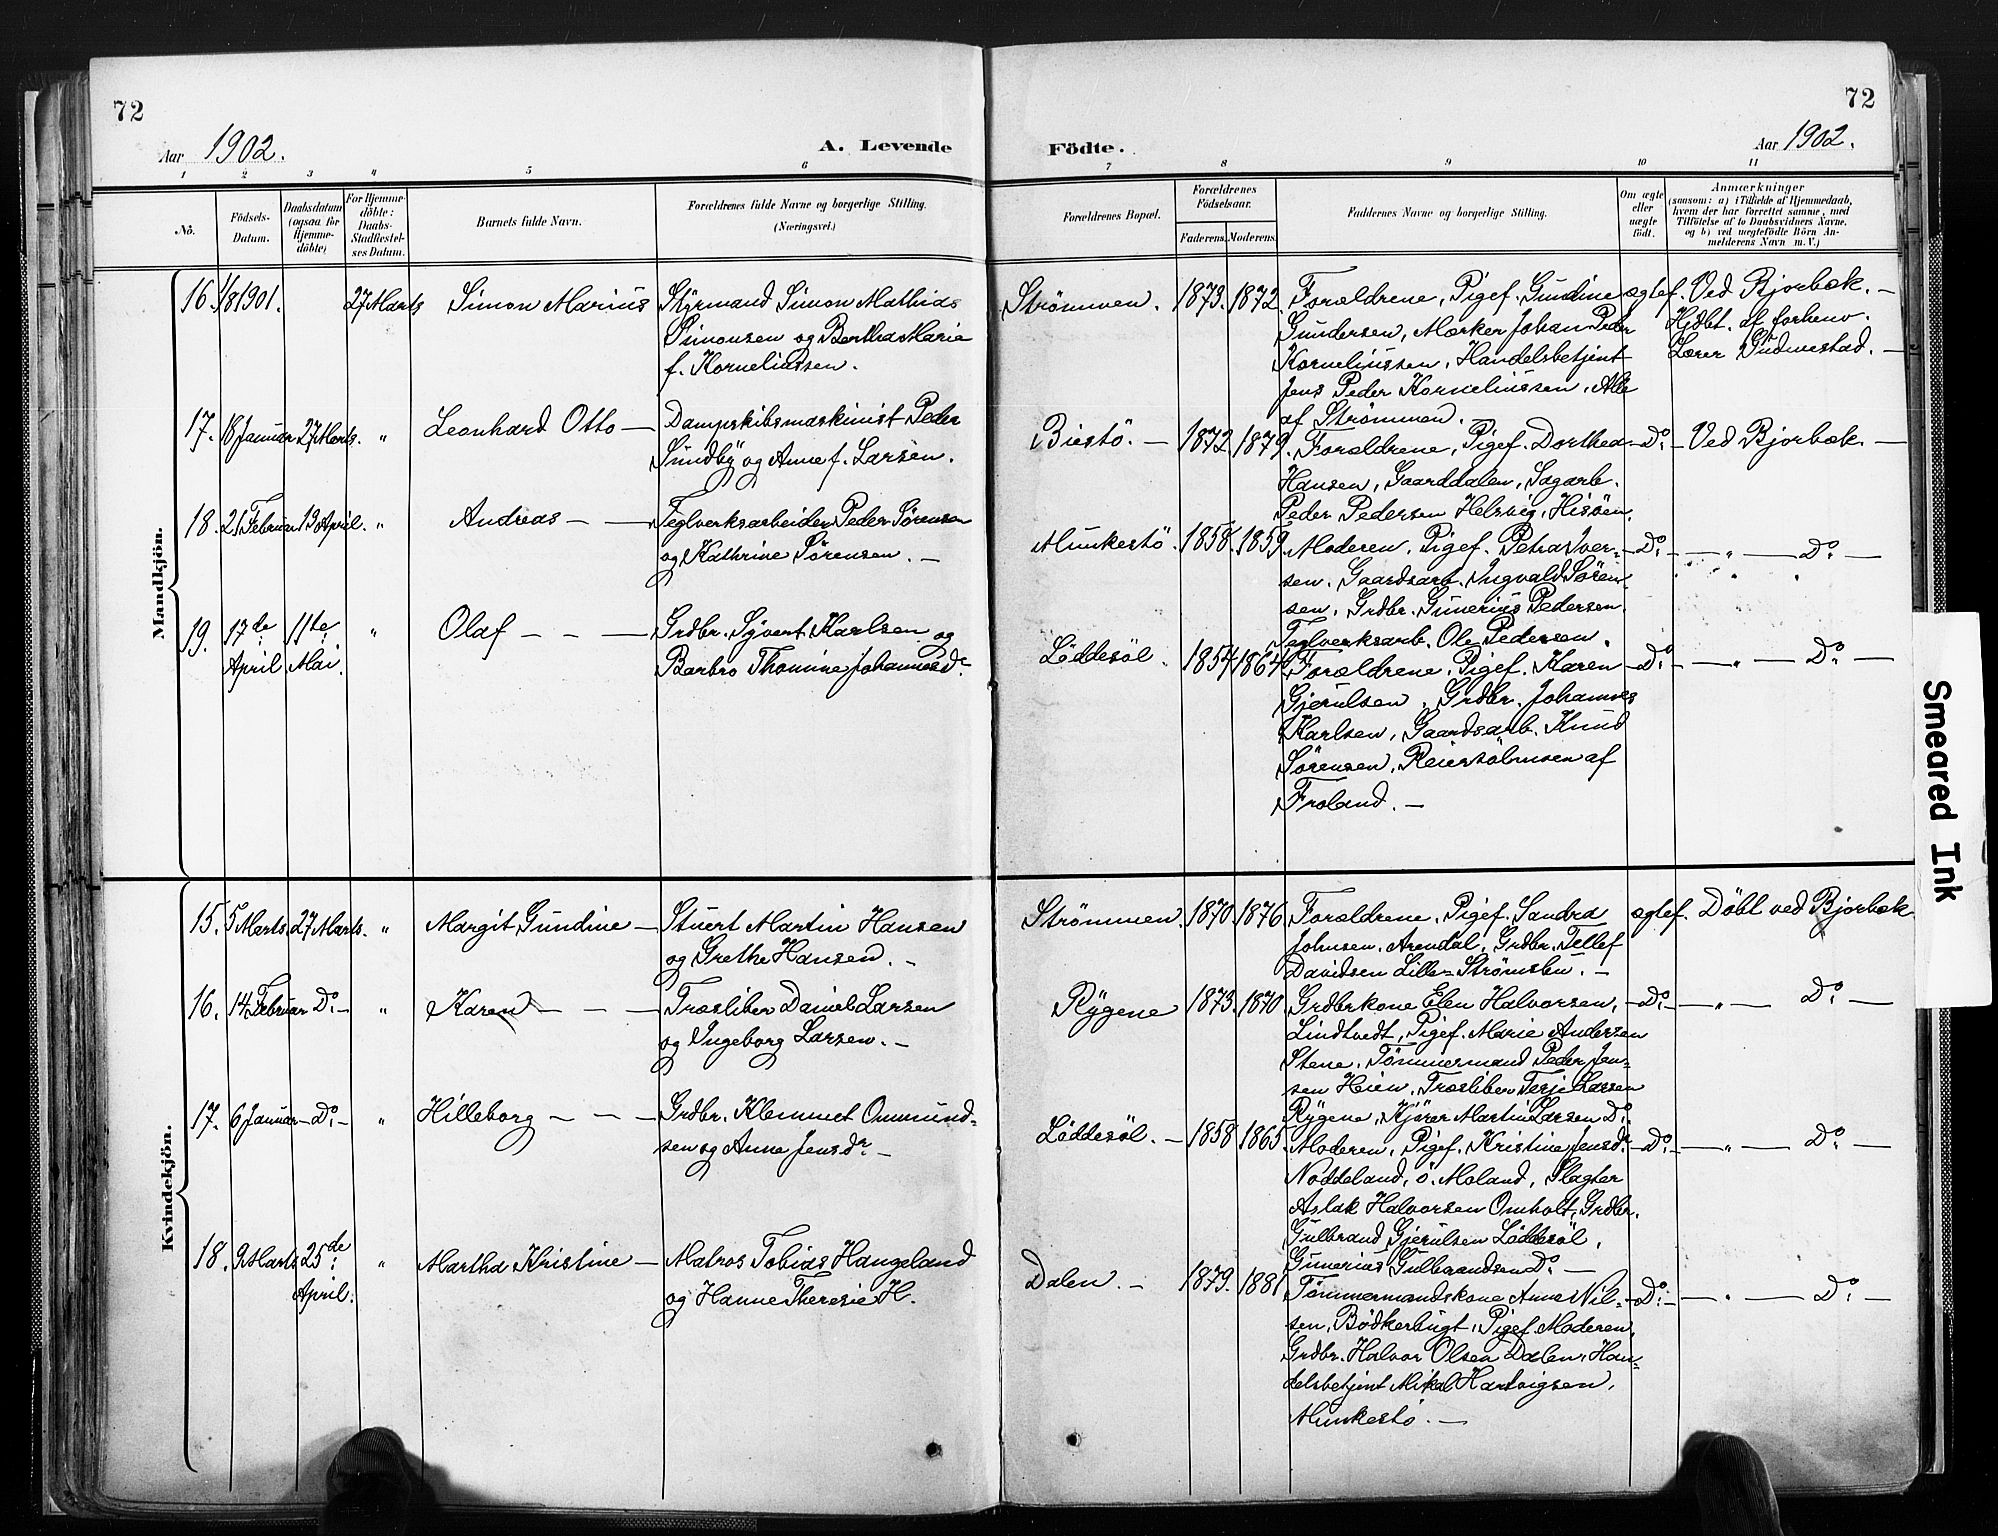 72
Aar 1902.
A. Levende
1 2 3 4 5 6
Nô.
Födsels-
Datum.
Daabsdatum
(ogsaa for
Hjemme-
döbte)
For Hjemme-
döbte:
Daabs-
Stadfæstel-
ses Datum.
Barnets fulde Navn.
Forældrenes fulde Navne og borgerlige Stilling.
(Næringsvei.)
Mandkjön.
16. 1/8 1901. 27 Marts Simon Marius Styrmand Simon Mathias
Simonsen og Bertha Marie
f. Korneliussen.
17. 18 Januar 27 Marts. " Leonhard Otto — Dampskibsmaskinist Peder
Sundby og Anne f. Larsen.
18. 21 Februar 13 April. " Andreas — — Teglverksarbeider Peder Sørensen
og Kathrine Sørensen. —
19. 17de 11te " Olaf — — — Grdbr. Syvert Karlsen og
April Mai. Barbro Thomine Johannesdr.
Kvindekjön.
15. 5 Marts. 27 Marts. " Margit Gundine — Stuert Martin Hansen
og Grethe Hansen. —
16. 14 Februar Do. — " Karen — — — Træsliber Daniel Larsen
og Ingeborg Larsen. —
17. 6 Januar — Do. — " Hilleborg — — — Grdbr. Klemmet Ommund-
sen og Anne Jensdr. —
18. 9 Marts 25de " Martha Kristine — Matros Tobias Haugeland
April. og Hanne Theresie H.
72
Födte.
Aar 1902.
7 8 9 10 11
Forældrenes Bopæl.
Forældrenes
Födselsaar.
Faderens. Moderens.
Faddernes Navne og borgerlige Stilling.
Om ægte
eller
uægte
födt.
Anmærkninger
(saasom: a) i Tilfælde af Hjemmedaab,
hvem der har forrettet samme, med
Tilföielse af to Daabsvidners Navne,
og b) ved uegtefödte Börn An-
melderens Navn m. V.)
Strømmen. 1873. 1872. Forældrene, Pigef. Gundine ægtef. Ved Bjorbæk. —
Gundersen, Mærker Johan Peder Hjdbt. af forhenv.
Korneliussen, Handelsbetjent Lærer Gudmestad. —
Jens Peder Korneliussen, Alle
af Strømmen.
Biestö. — 1872. 1879. Forældrene, Pigef. Dorthea — Do. — Ved Bjorbæk. —
Hansen, Gaarddalen, Sagarb.
Peder Pedersen Helsvig, Hisöen.
Munkestö. 1858. 1859. Moderen, Pigef. Petra Iver- — Do. — — " — Do. —
sen. Gaardsarb. Ingvald Søren-
sen, Grdbr. Gunerius Pedersen.
Teglverksarb. Ole Pedersen.
Löddesöl. 1854. 1864. Forældrene, Pigef. Karen — Do. — — " — Do. —
Gjerulsen, Grdbr. Johannes
Karlsen, Gaardsarb. Knud
Sørensen, Reiersölmoen af
Froland. —
Strømmen. 1870. 1876. Forældrene, Pigef. Sandra ægtef. Döbt ved Bjorbæk
Johnsen, Arendal, Grdbr. Tellef
Davidsen Lille-Strømsbu. —
Rygene 1873. 1870. Grdbrkone Elen Halvorsen, — Do. — — " — Do. —
Lindtvedt, Pigef. Marie Andersen
Stene, Tömmermand Peder Jen-
sen Heien, Træsliber Terje Larsen
Rygene, Kjörer Martin Larsen Do.
Löddesöl. — 1858. 1865. Moderen, Pigef. Kristine Jensdr. — Do. — — " — Do. —
Noddeland, ö. Moland, Slagter
Aslak Halvorsen Omholt, Grdbr.
Gulbrand Gjerulsen Löddesöl,
Gunerius Gulbrandsen Do. —
Dalen. — 1879. 1881. Tömmermandskone Anna Nil- — Do. — — " — Do. —
sen, Bödkerbugt, Pigef. Moderen,
Grdbr. Halvor Olsen Dalen, Han-
delsbetjent Mikal Hartvigsen,
Munkestö. —
Smeared Ink